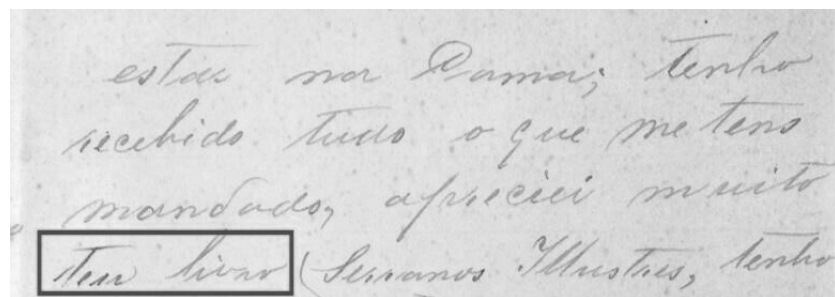 estar na Cama; tenho
recebido tudo o que me tens
mandado, apreciei muito
teu livro (Serranos Illustres, tenho